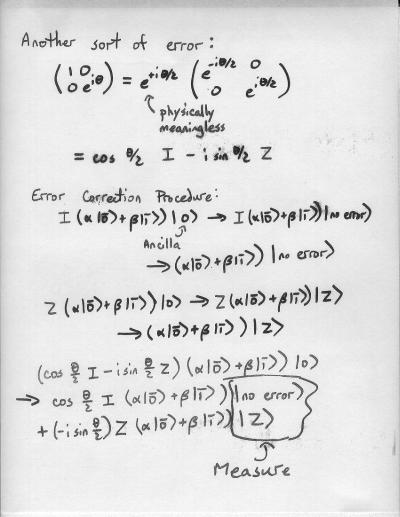 Another sort of error:
(1 0 / 0 e^{iθ}) = e^{+iθ/2} (e^{-iθ/2} 0 / 0 e^{iθ/2})
physically
meaningless
= cos θ/2 I - i sin θ/2 Z
Error Correction Procedure:
I (α|0̄⟩+β|1̄⟩)|0⟩ → I(α|0̄⟩+β|1̄⟩)|no error⟩
Ancilla
→(α|0̄⟩+β|1̄⟩)|no error⟩
Z (α|0̄⟩+β|1̄⟩)|0⟩ → Z(α|0̄⟩+β|1̄⟩)|Z⟩
→(α|0̄⟩+β|1̄⟩)|Z⟩
(cos θ/2 I - i sin θ/2 Z) (α|0̄⟩+β|1̄⟩)|0⟩
→ cos θ/2 I (α|0̄⟩+β|1̄⟩)|no error⟩
+ (-i sin θ/2) Z (α|0̄⟩+β|1̄⟩)|Z⟩
Measure